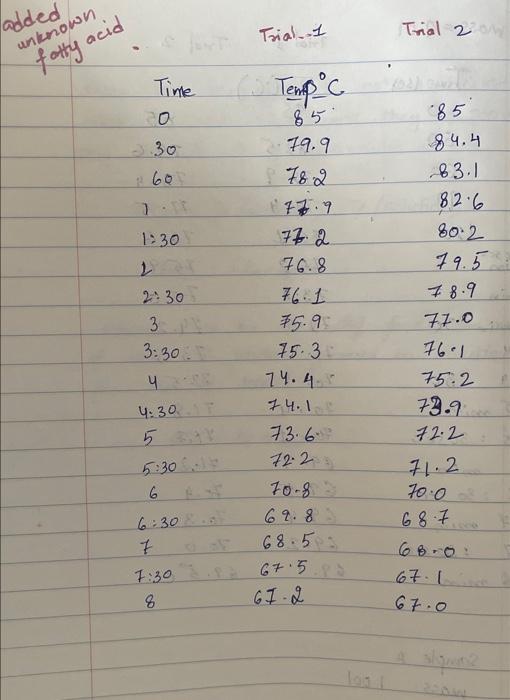 added
unknown
fatty acid
Trial-1 Trial 2
Time Temp°C
0 85 85
30 79.9 84.4
60 78.2 83.1
1 77.9 82.6
1:30 77.2 80.2
2 76.8 79.5
2:30 76.1 78.9
3 75.9 77.0
3:30 75.3 76.1
4 74.4 75.2
4:30 74.1 73.9
5 73.6 72.2
5:30 72.2 71.2
6 70.8 70.0
6:30 69.8 68.7
7 68.5 68.0
7:30 67.5 67.1
8 67.2 67.0